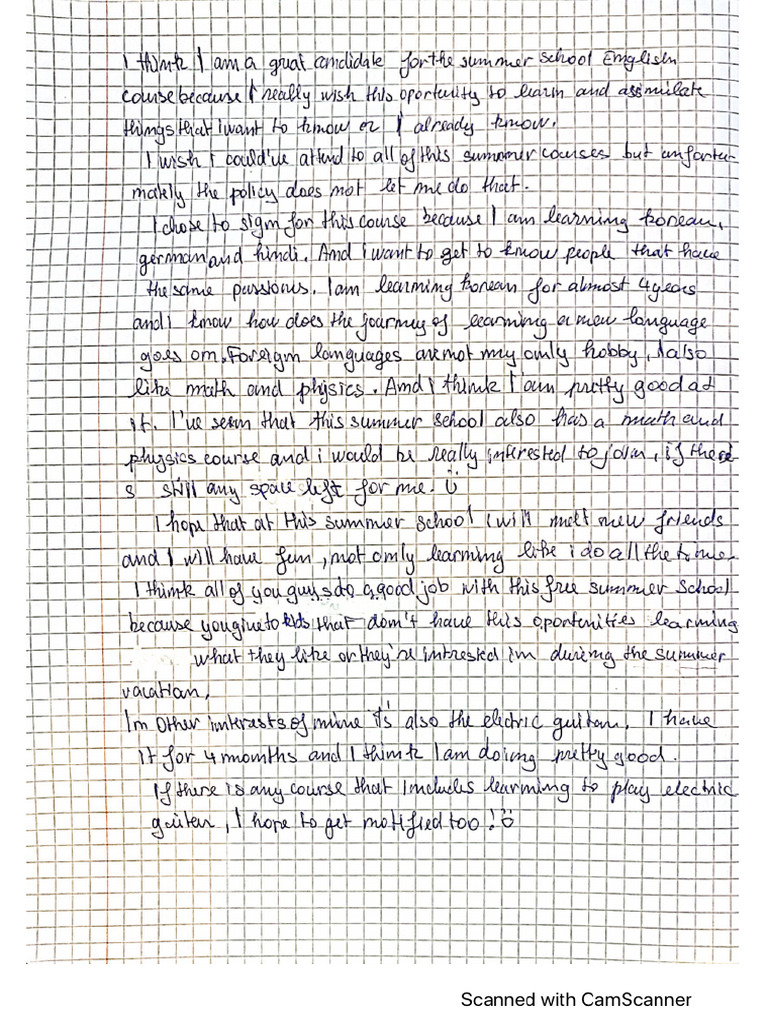 I think I am a great candidate for the summer school English
course because I really wish this oportunity to learn and assimilate
things that i want to know or I already know.
I wish I could've attend to all of this summer courses but unfortu-
nately the policy does not let me do that.
I chose to sign for this course because I am learning korean,
german and hindi. And i want to get to know people that have
the same passions. I am learning korean for almost 4 years
and i know how does the journey of learning a new language
goes on. Foreign languages are not my only hobby, I also
like math and physics. And i think I am pretty good at
it. I've seen that this summer school also has a math and
physics course and i would be really interested to join, if there
s still any space left for me. :)
I hope that at this summer school I will meet new friends
and I will have fun, not only learning like i do all the time.
I think all of you guys do a good job with this free summer school
because you give to kids that don't have this oportunities learning
what they like or they're intrested in during the summer
vacation,
In other interests of mine it's also the electric guitar. I have
it for 4 months and I think I am doing pretty good.
If there is any course that includes learning to play electric
guitar, I hope to get notified too! :)
Scanned with CamScanner